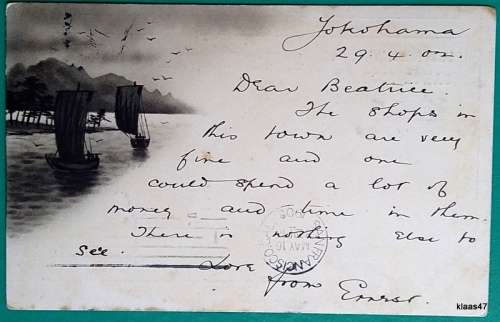 Yokohama
29. 4. 02.
Dear Beatrice.
The shops in
this town are very
fine and one
could spend a lot of
money and time in them.
There is nothing else to
see.
Love
from Ernest.
FRANCISCO
MAY 16
klaas47